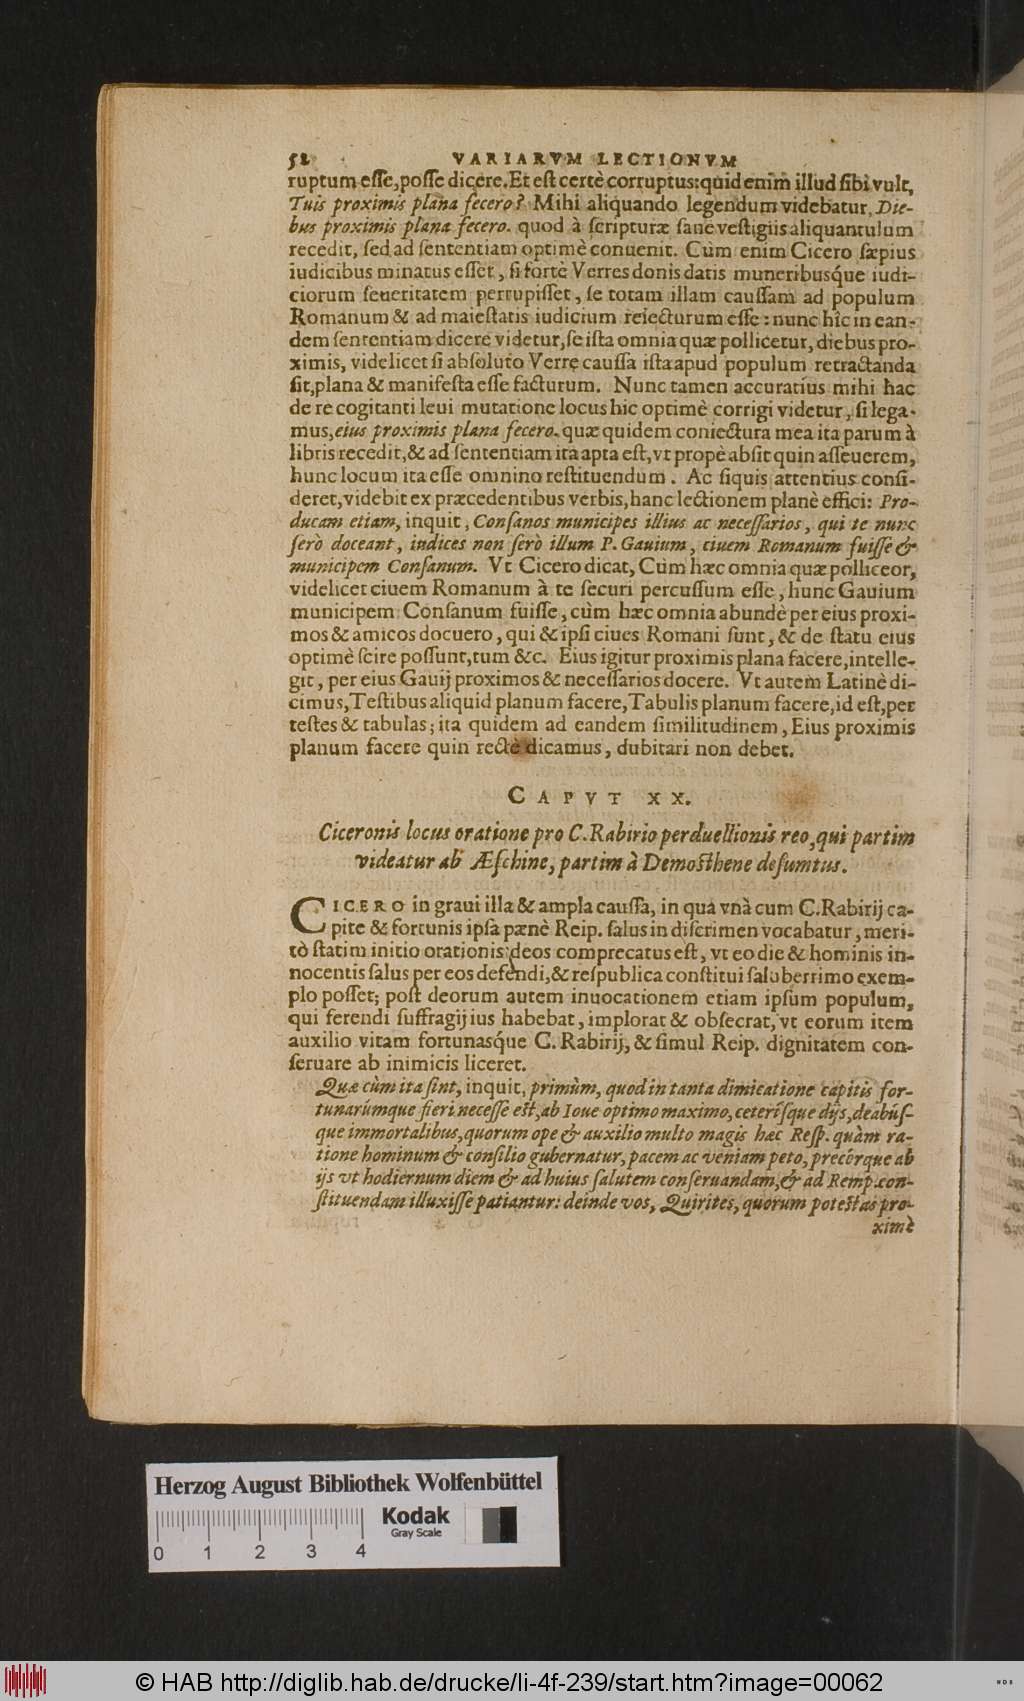 52 VARIARVM LECTIONVM
ruptum eſſe, poſſe dicere. Et eſt certè corruptus: quid enim illud ſibi vult,
Tuis proximis plana fecero? Mihi aliquando legendum videbatur, Die-
bus proximis plana fecero. quod à ſcripturæ ſane veſtigiis aliquantulum
recedit, ſed ad ſententiam optimè conuenit. Cùm enim Cicero ſæpius
iudicibus minatus eſſet, ſi fortè Verres donis datis muneribusq́ue iudi-
ciorum ſeueritatem perrupiſſet, ſe totam illam cauſſam ad populum
Romanum & ad maieſtatis iudicium reiecturum eſſe: nunc hîc in ean-
dem ſententiam dicere videtur, ſe iſta omnia quæ pollicetur, diebus pro-
ximis, videlicet ſi abſoluto Verre cauſſa iſta apud populum retractanda
ſit, plana & manifeſta eſſe facturum. Nunc tamen accuratius mihi hac
de re cogitanti leui mutatione locus hic optimè corrigi videtur, ſi lega-
mus, eius proximis plana fecero. quæ quidem coniectura mea ita parum à
libris recedit, & ad ſententiam ita apta eſt, vt propè abſit quin aſſeuerem,
hunc locum ita eſſe omnino reſtituendum. Ac ſiquis attentius conſi-
deret, videbit ex præcedentibus verbis, hanc lectionem planè effici: Pro-
ducam etiam, inquit, Conſanos municipes illius ac neceſſarios, qui te nunc
ſerò doceant, iudices non ſerò illum P. Gauium, ciuem Romanum fuiſſe &
municipem Conſanum. Vt Cicero dicat, Cùm hæc omnia quæ polliceor,
videlicet ciuem Romanum à te ſecuri percuſſum eſſe, hunc Gauium
municipem Conſanum fuiſſe, cùm hæc omnia abundè per eius proxi-
mos & amicos docuero, qui & ipſi ciues Romani ſunt, & de ſtatu eius
optimè ſcire poſſunt, tum &c. Eius igitur proximis plana facere, intelle-
git, per eius Gauij proximos & neceſſarios docere. Vt autem Latinè di-
cimus, Teſtibus aliquid planum facere, Tabulis planum facere, id eſt, per
teſtes & tabulas; ita quidem ad eandem ſimilitudinem, Eius proximis
planum facere quin rectè dicamus, dubitari non debet.
CAPVT XX.
Ciceronis locus oratione pro C. Rabirio perduellionis reo, qui partim
videatur ab Æſchine, partim à Demoſthene deſumtus.
CICERO in graui illa & ampla cauſſa, in qua vnà cum C. Rabirij ca-
pite & fortunis ipſa pænè Reip. ſalus in diſcrimen vocabatur, meri-
tò ſtatim initio orationis deos comprecatus eſt, vt eo die & hominis in-
nocentis ſalus per eos defendi, & reſpublica conſtitui ſaluberrimo exem-
plo poſſet; poſt deorum autem inuocationem etiam ipſum populum,
qui ferendi ſuffragij ius habebat, implorat & obſecrat, vt eorum item
auxilio vitam fortunasq́ue C. Rabirij, & ſimul Reip. dignitatem con-
ſeruare ab inimicis liceret.
Quæ cùm ita ſint, inquit, primùm, quod in tanta dimicatione capitis for-
tunarúmque fieri neceſſe eſt, ab Ioue optimo maximo, ceteríſque dijs, deabúſ-
que immortalibus, quorum ope & auxilio multo magis hæc Reſp. quàm ra-
tione hominum & conſilio gubernatur, pacem ac veniam peto, precórque ab
ijs vt hodiernum diem & ad huius ſalutem conſeruandam, & ad Remp. con-
ſtituendam illuxiſſe patiantur: deinde vos, Quirites, quorum poteſtas pro-
ximè
Herzog August Bibliothek Wolfenbüttel
Kodak
Gray Scale
0 1 2 3 4
© HAB http://diglib.hab.de/drucke/li-4f-239/start.htm?image=00062